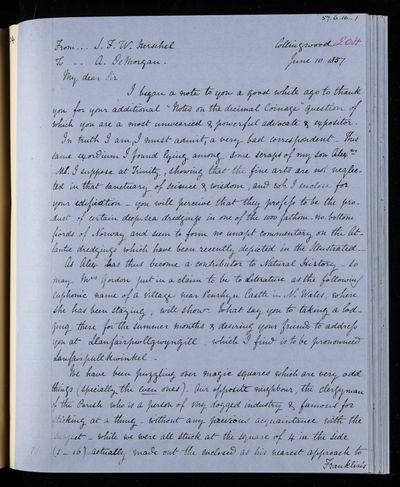 57.6.10.1
From... J. F. W. Herschel Collingwood
To .. A. DeMorgan. June 10. 1857
My dear Sir
I began a note to you a good while ago to thank
you for your additional "Notes on the decimal Coinage" question of
which you are a most unwearied & powerful advocate & expositor.
In truth I am, I must admit, a very bad correspondent. This
same exordium I found lying among some scraps of my son Alexr's
MS. I suppose at Trinity, showing that the fine arts are not neglec-
ted in that sanctuary of science & wisdom, and wh I enclose for
your edification - you will perceive that they profess to be the pro-
duct of certain deep-sea dredgings in one of the 100 fathom-no-bottom
fiords of Norway and seem to form no unapt commentary on the At-
lantic dredgings which have been recently depicted in the Illustrated.
As Alex has thus become a contributor to Natural History, so
may Mrs Gordon put in a claim to be to Literature as the following
euphonic name of a village near Penrhyn Castle in N. Wales, where
she has been staying, will show. What say you to taking a lod-
ging there for the summer months & desiring your friends to address
you at Llanfairpwllgwyngill. which I find is to be pronounced
Lanfairpulkwinkel.
We have been puzzling over magic squares which are very odd
things (specially the even ones). Our opposite neighbour, the clergyman
of the Parish who is a person of very dogged industry & famous for
sticking at a thing - without any previous acquaintance with the
subject - while we were all stuck at the square of 4 in the side
(1-16) actually made out the enclosed as his nearest approach to
Franklin's